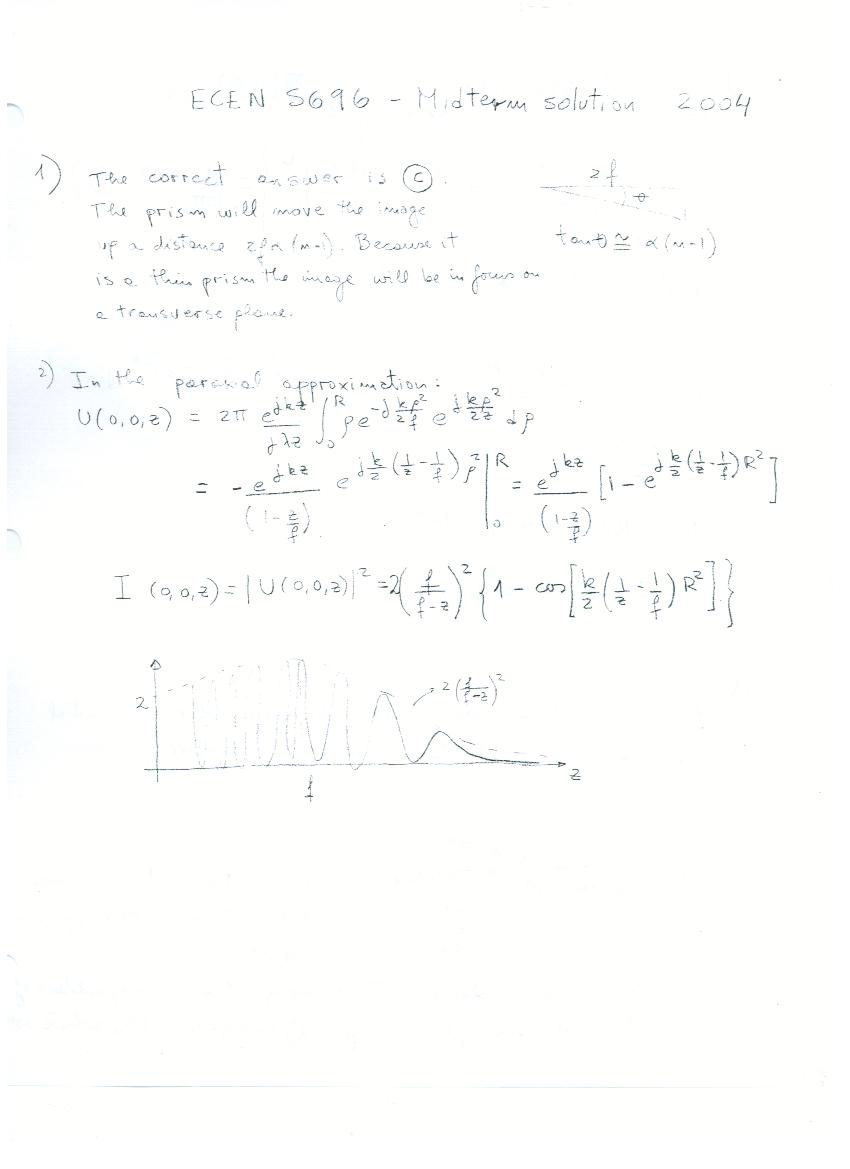 ECEN 5696 - Midterm solution 2004
1) The correct answer is Ⓒ.
The prism will move the image
up a distance 2fα(n-1). Because it
is a thin prism the image will be in focus on
a transverse plane.
2f
θ
tanθ ≅ α(n-1)
2) In the paraxial approximation:
U(0,0,z) = 2π e^{jkz}/(jλz) ∫_0^R ρ e^{-j kρ²/2f} e^{j kρ²/2z} dρ
= - e^{jkz}/(1-z/f) e^{j k/2 (1/z - 1/f) ρ²} |_0^R = e^{jkz}/(1-z/f) [1 - e^{j k/2 (1/z - 1/f) R²}]
I (0,0,z) = |U(0,0,z)|² = 2(f/(f-z))² {1 - cos[k/2 (1/z - 1/f) R²]}
2
2(f/(f-z))²
z
f